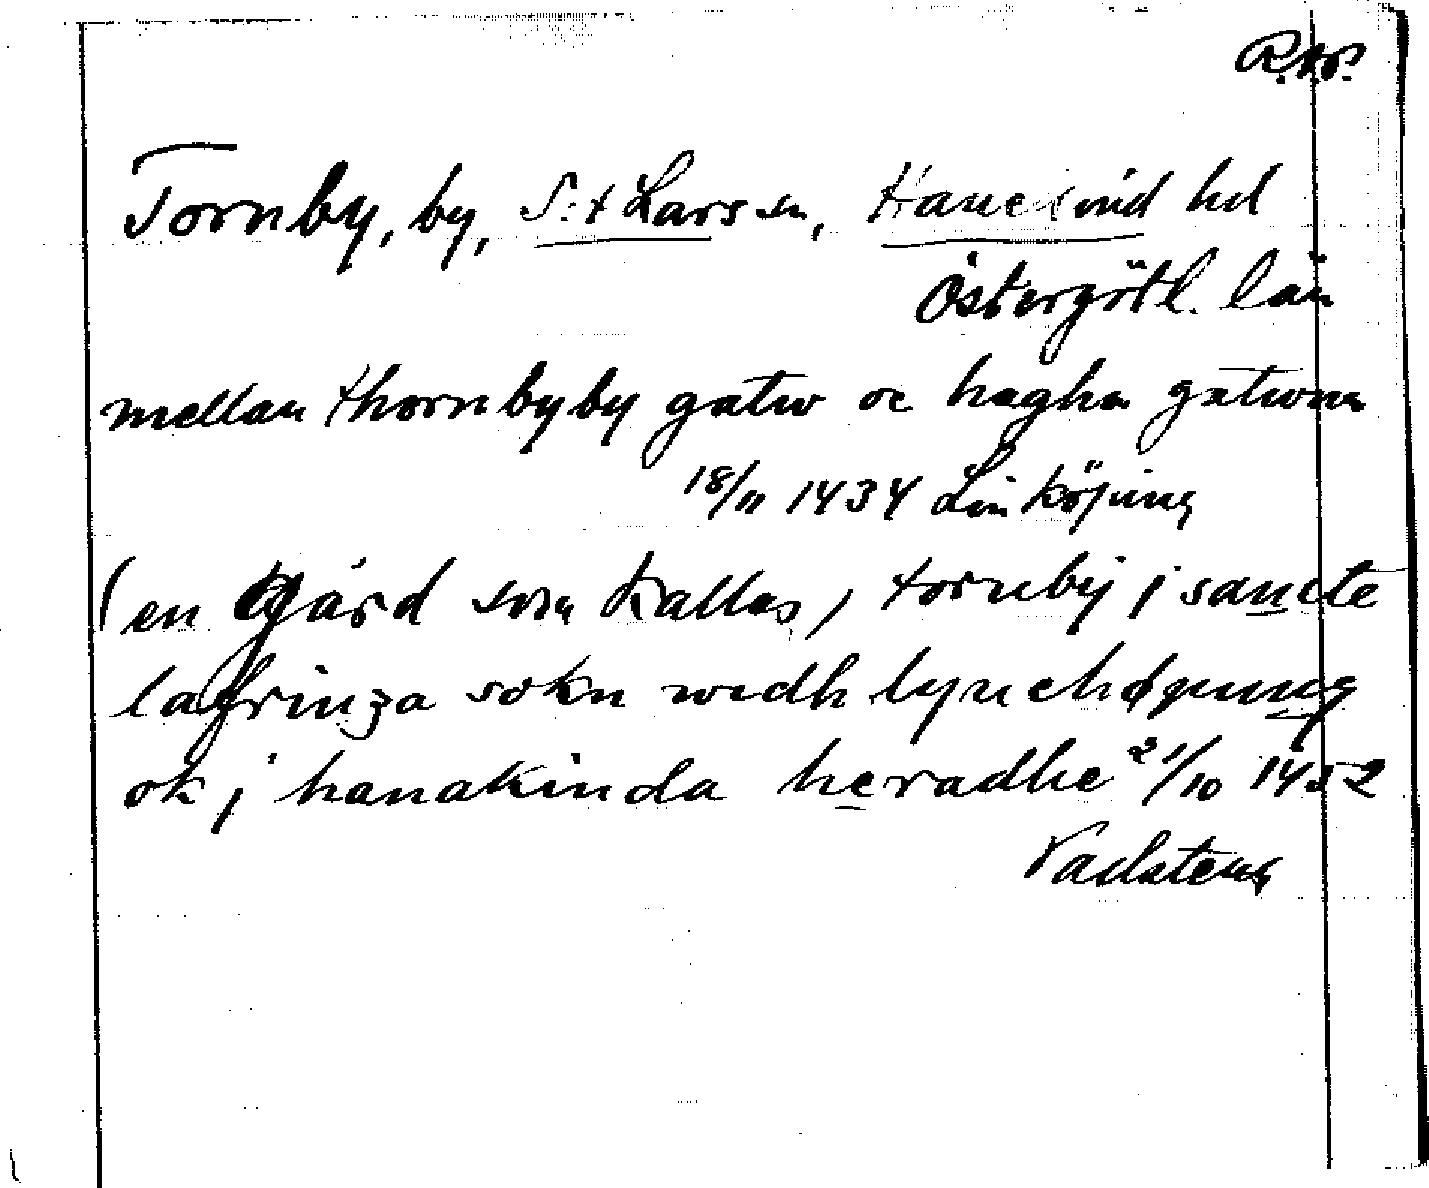 R.A.P.
Tornby, by, S:t Lars sn, Hanekind hd
Östergötl. län
mellan thornbyby gatw oc hagha gatwna
18/11 1434 Linköping
(en gård som kallas) tornby j sancte
lafrinza sokn widh lynchøpung
ok j hanakinda heradhe 21/10 1452
Vadstena